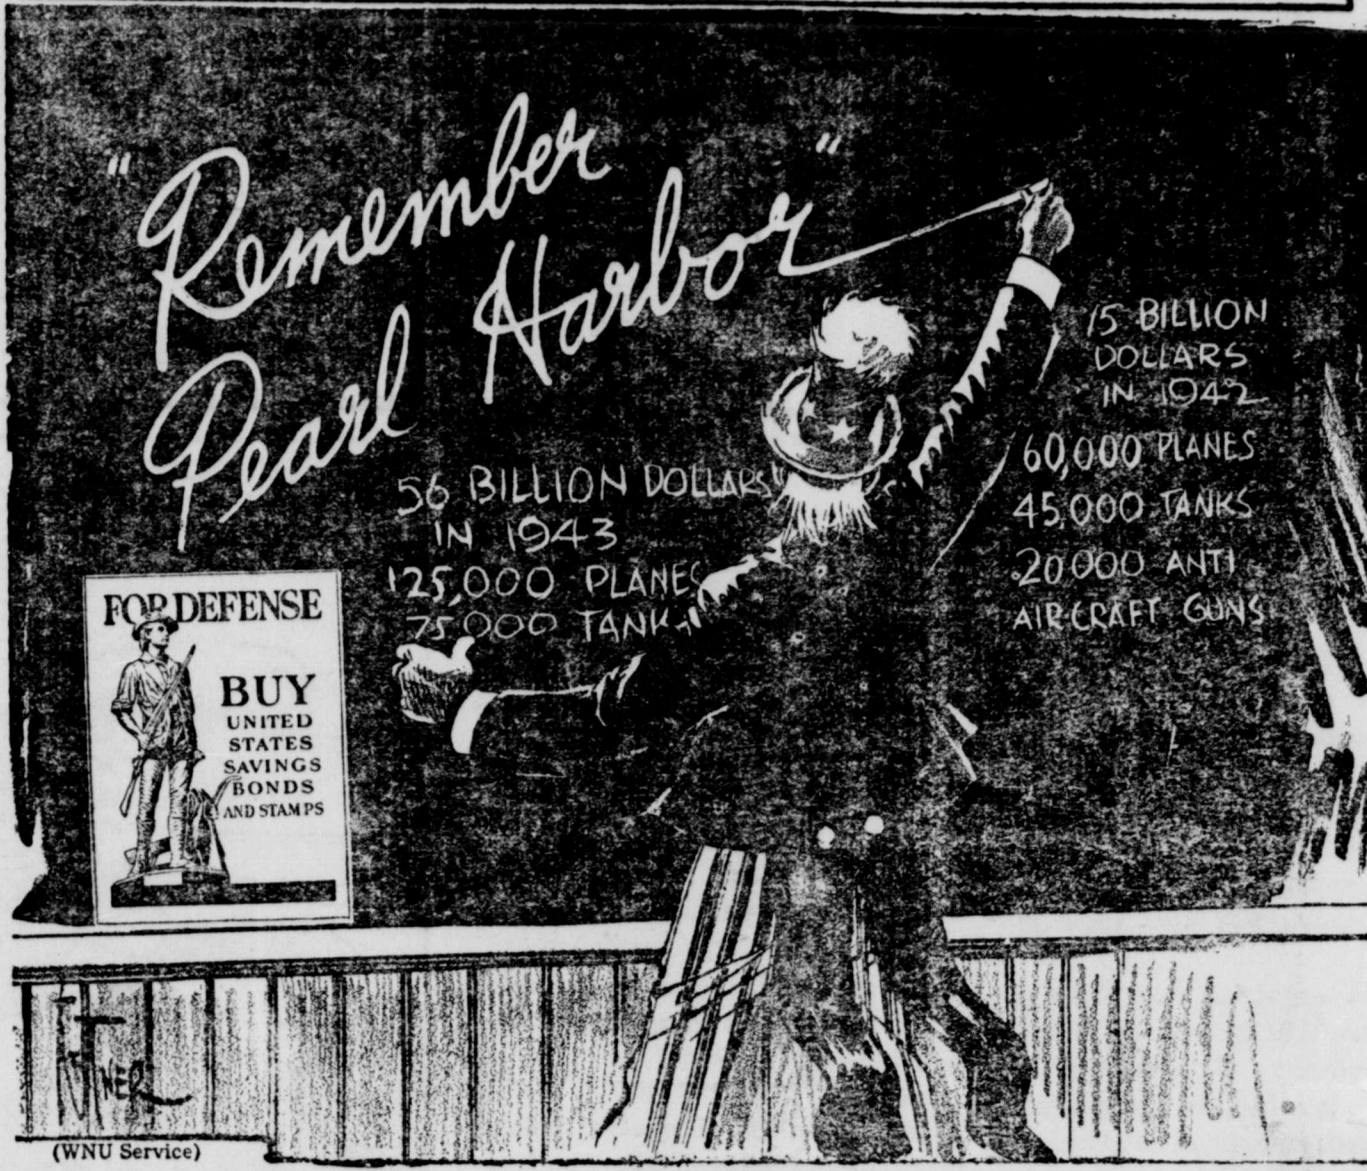 "Remember
Pearl Harbor"
56 BILLION DOLLARS
IN 1943
125,000 PLANES
75,000 TANKS
15 BILLION
DOLLARS
IN 1942
60,000 PLANES
45,000 TANKS
20,000 ANTI
AIRCRAFT GUNS
FOR DEFENSE
BUY
UNITED
STATES
SAVINGS
BONDS
AND STAMPS
(WNU Service)